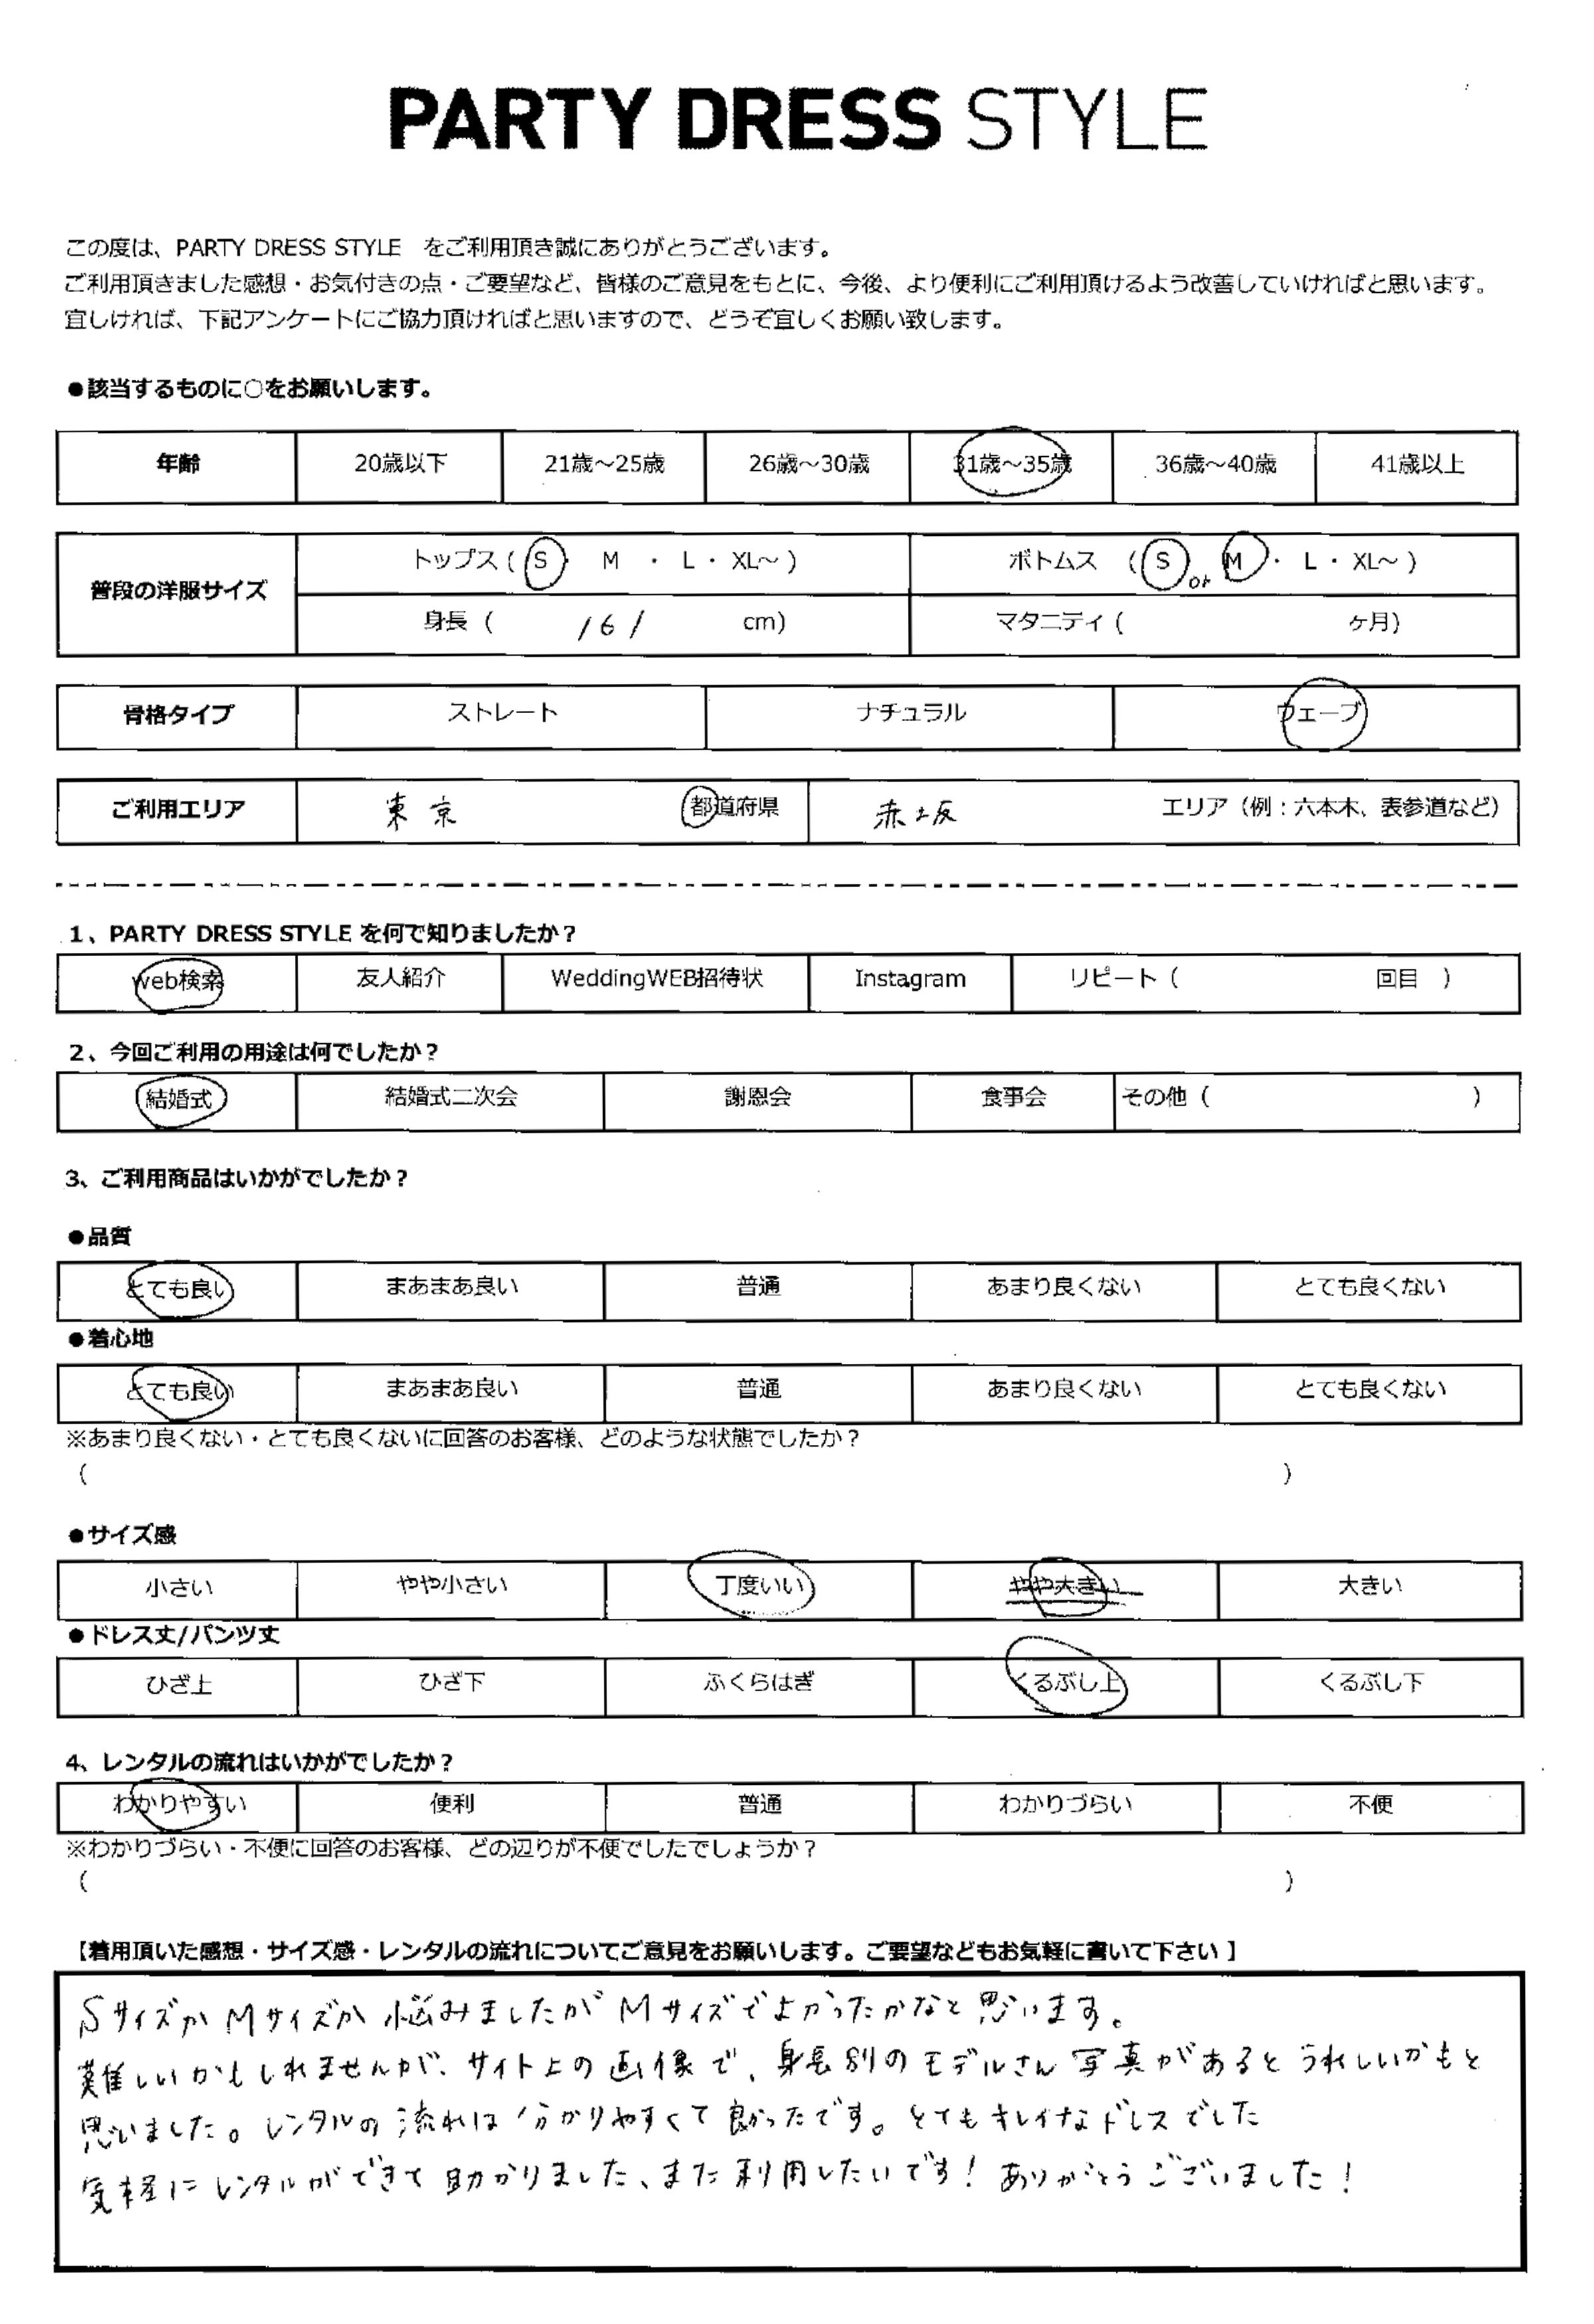 PARTY DRESS STYLE
この度は、PARTY DRESS STYLE をご利用頂き誠にありがとうございます。
ご利用頂きました感想・お気付きの点・ご要望など、皆様のご意見をもとに、今後、より便利にご利用頂けるよう改善していければと思います。
宜しければ、下記アンケートにご協力頂ければと思いますので、どうぞ宜しくお願い致します。
●該当するものに○をお願いします。
年齢 20歳以下 21歳～25歳 26歳～30歳 31歳～35歳 36歳～40歳 41歳以上
普段の洋服サイズ トップス ( S ・ M ・ L ・ XL～ ) ボトムス ( S or M ・ L ・ XL～ )
身長 ( 161 cm) マタニティ ( ヶ月)
骨格タイプ ストレート ナチュラル ウェーブ
ご利用エリア 東京 都道府県 赤坂 エリア（例：六本木、表参道など）
1、PARTY DRESS STYLE を何で知りましたか？
web検索 友人紹介 WeddingWEB招待状 Instagram リピート ( 回目 )
2、今回ご利用の用途は何でしたか？
結婚式 結婚式二次会 謝恩会 食事会 その他 ( )
3、ご利用商品はいかがでしたか？
●品質
とても良い まあまあ良い 普通 あまり良くない とても良くない
●着心地
とても良い まあまあ良い 普通 あまり良くない とても良くない
※あまり良くない・とても良くないに回答のお客様、どのような状態でしたか？
( )
●サイズ感
小さい やや小さい 丁度いい やや大きい 大きい
●ドレス丈/パンツ丈
ひざ上 ひざ下 ふくらはぎ くるぶし上 くるぶし下
4、レンタルの流れはいかがでしたか？
わかりやすい 便利 普通 わかりづらい 不便
※わかりづらい・不便に回答のお客様、どの辺りが不便でしたでしょうか？
( )
【着用頂いた感想・サイズ感・レンタルの流れについてご意見をお願いします。ご要望などもお気軽に書いて下さい 】
SサイズかMサイズか悩みましたがMサイズでよかったかなと思います。
難しいかもしれませんが、サイト上の画像で、身長別のモデルさん写真があるとうれしいかもと
思いました。レンタルの流れは分かりやすくて良かったです。とてもキレイなドレスでした
気軽にレンタルができて助かりました、また利用したいです！ありがとうございました！